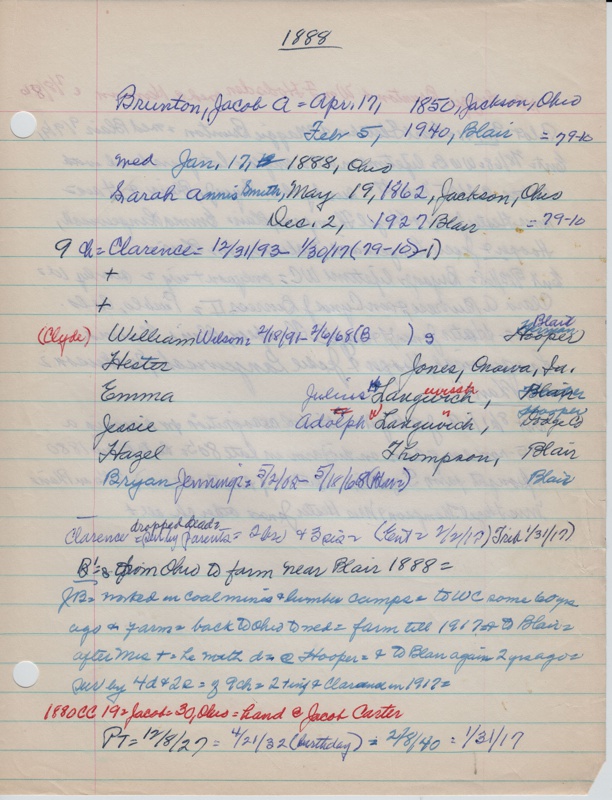 1888
Brunton, Jacob A = Apr. 17, 1850, Jackson, Ohio
Feb 5, 1940, Blair = 79-10
med Jan. 17, 1888, Ohio
Sarah Annis Smith, May 19, 1862, Jackson, Ohio
Dec. 2, 1927 Blair = 79-10
9 ch = Clarence = 12/31/93 - 1/30/17 (79-10-1)
+
+
(Clyde) William Wilson = 2/18/91 - 2/6/68 (B ) 9 Blair Hooper
Hester Jones, Onawa, Ia.
Emma Julius Langwich, Blair
Jessie Adolph Langwich, Hooper Dodge Co
Hazel Thompson, Blair
Bryan Jennings = 5/2/02 - 5/18/68 (Blair) Blair
Clarence = dropped dead = sur by parents = 2 br & 3 sis = (Ent = 2/2/17) Trib 1/31/17)
B's = from Ohio to farm near Blair 1888 =
JB = worked in coal mines & lumber camps = to WC some 60 yrs
ago & farm = back to Ohio to med = farm till 1917 & to Blair =
after Mrs + = he with d = @ Hooper = & to Blair again 2 yrs ago =
sur by 4 d & 2 s = 9 ch = 2 + inf & Clarence in 1917 =
1880 CC 19 = Jacob = 30, Ohio = hand @ Jacob Carter
PT = 12/8/27 = 4/21/32 (birthday) = 2/8/40 = 1/31/17